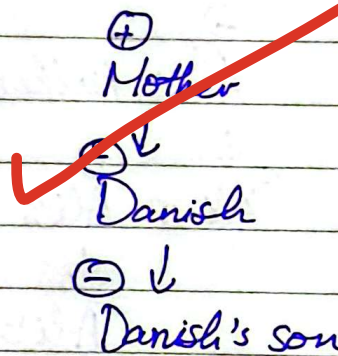 ⊕
Mother
⊖ ↓
Danish
⊖ ↓
Danish's son